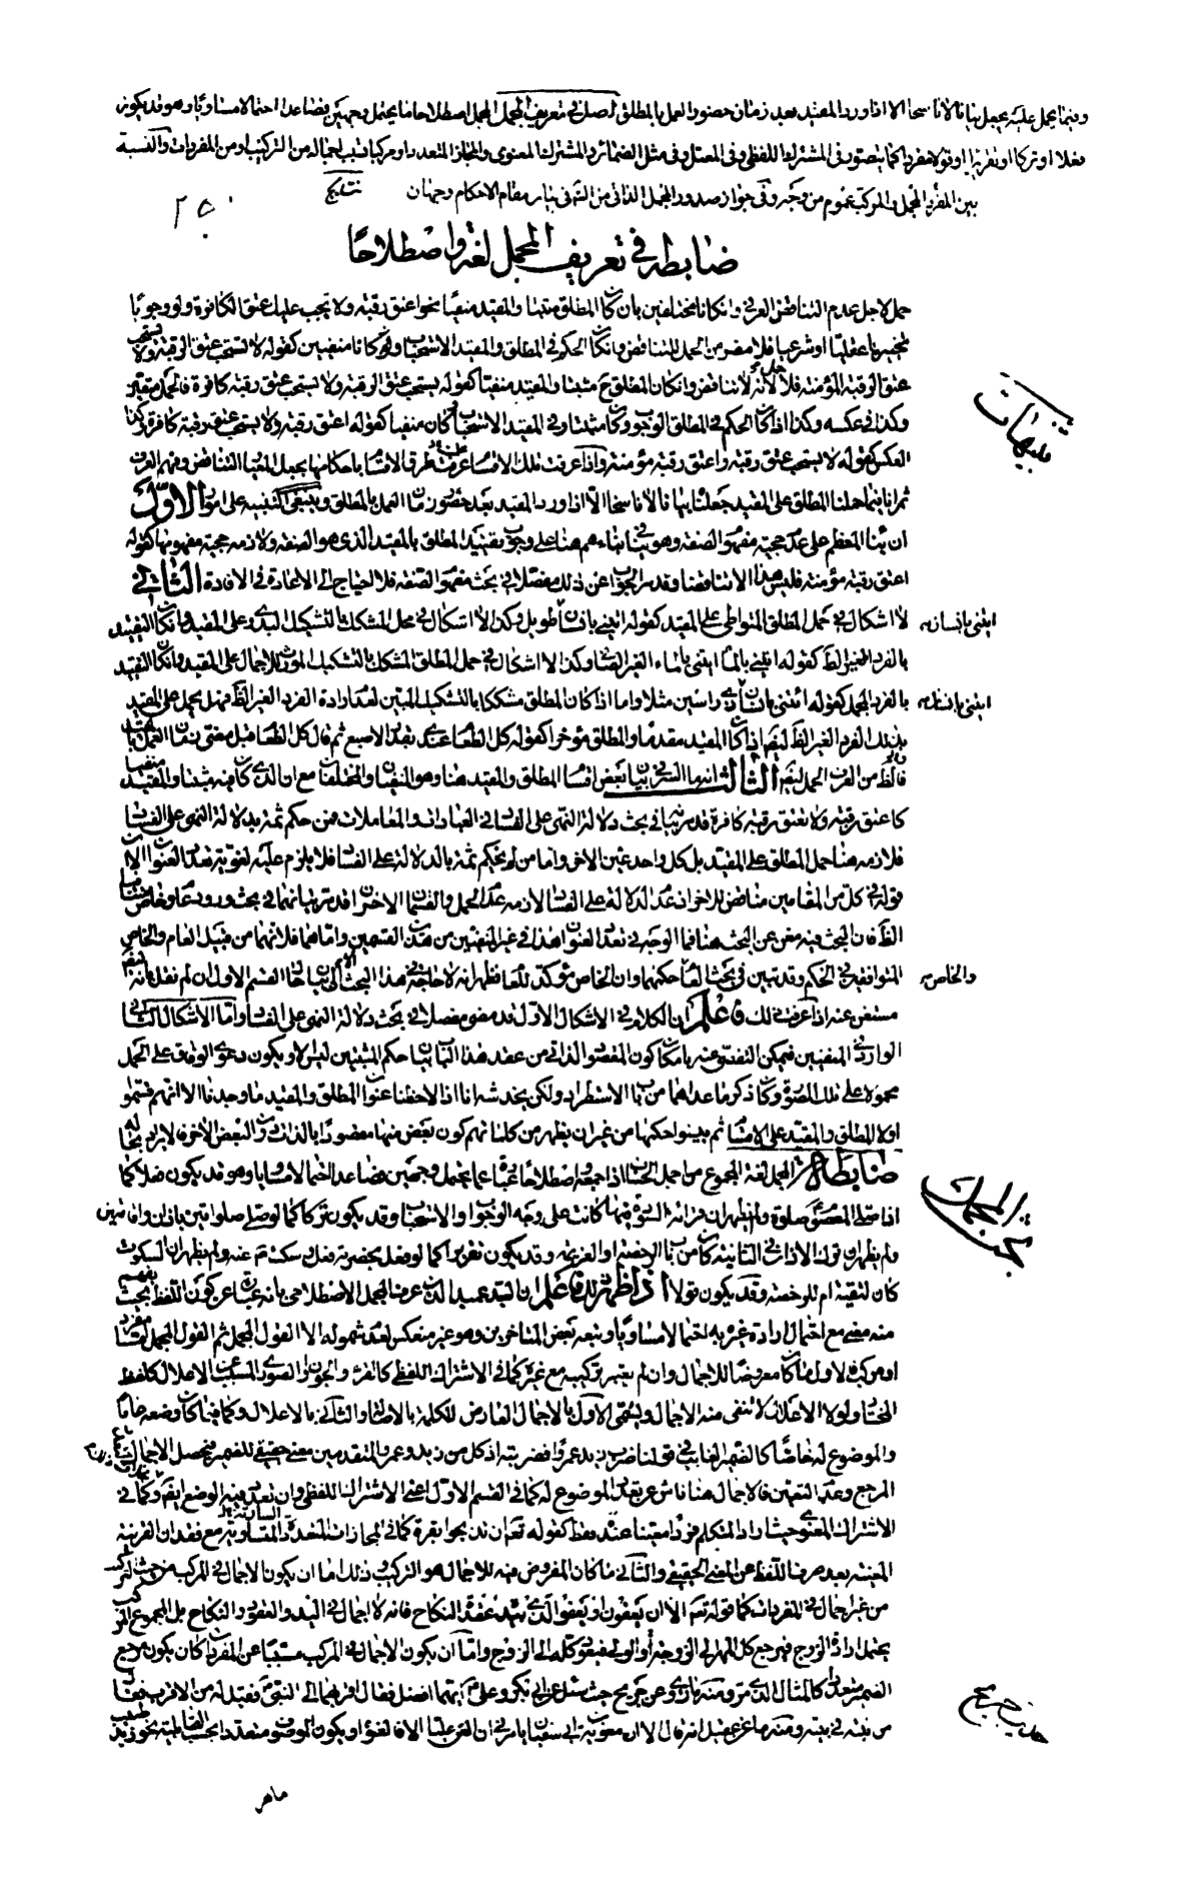 وفيما يحمل عليه يجعل بيانا لا ناسخا الا اذا ورد المقيد بعد زمان حضور العمل بالمطلق اصل في تعريف المجمل المجمل اصطلاحا ما يحتمل وجهين فصاعدا احتمالا مساويا وهو قد يكون
فعلا او تركا او تقريرا او قولا مفردا كما يتصور في المشترك اللفظي وفي المعتل وفي مثل الضمائر والمشترك المعنوي والمجاز المتعدد او مركبا من التركيب او من المفردات والنسبة
بين المفرد المجمل والمركب عموم من وجه وفي جواز صدور المجمل الذاتي من النبي في بيان مقام الاحكام وجهان
نتايج
٢٥٠
ضابطه في تعريف المجمل لغة واصطلاحًا
حمل لاجل عدم التناقض العرفي وان كانا مختلفين بان كان المطلق مثبتا والمقيد منفيا نحو اعتق رقبة ولا يجب عليك عتق الكافرة ولو وجوبا
تخييريا عقليا او شرعيا فلا مفر من الحمل للتناقض وان كان الحكم في المطلق والمقيد الاستحباب ولو كانا منفيين كقوله لا تستحب عتق الرقبة ولا يستحب
عتق الرقبة المؤمنة فلا حمل لانه لا تناقض وان كان المطلق ح مثبتا والمقيد منفيا كقوله يستحب عتق الرقبة ولا تستحب عتق رقبة كافرة فالحمل متعين
وكذا في عكسه وكذا اذا كان الحكم في المطلق الوجوب وكان مثبتا وفي المقيد الاستحباب وكان منفيا كقوله اعتق رقبة ولا يستحب عتق رقبة كافرة وكذا
العكس كقوله لا تستحب عتق رقبة واعتق رقبة مؤمنة واذا عرفت تلك الاقسام عرفت طرق الاقسام باحكامها يجعل المعيار التناقض وفهم العرف
ثم انا فيما حملنا المطلق على المقيد جعلناه بيانا لا ناسخا الا اذا ورد المقيد بعد حضور زمان العمل بالمطلق وينبغي التنبيه على امور الاول
ان بناء المعظم على عدم حجية مفهوم الصفة وهو ينافي بناءهم هنا على وجوب تقييد المطلق بالمقيد الذي هو الصفة ولازمه حجية مفهومها كقوله
اعتق رقبة مؤمنة فليس هذا الا تناقضا وقد مر الجواب عن ذلك مفصلا في بحث مفهوم الصفة فلا احتياج الى الاعادة في الافادة الثاني
لا اشكال في حمل المطلق المتواطي على المقيد كقوله ائتني بانسان طويل وكذا لا اشكال في محل المشكك بالتشكيك البدوي على المقيد وان كان التقييد
بالفرد الغير الظاهر كقوله ائتني بالماء ائتني بالماء الغير الصافي وكذا لا اشكال في حمل المطلق المشكك بالتشكيك المورث للاجمال على المقيد وان كان التقييد
بالفرد المجمل كقوله ائتني بانسان ذي راسين مثلا واما اذا كان المطلق مشككا بالتشكيك المبين لعدم ارادة الفرد الغير الظاهر فهل يحمل على المقيد
بذلك الفرد الغير الظاهر نعم اذا كان المقيد مقدما والمطلق مؤخرا كقوله كل الطعام عندي بقدر الاصبع ثم قال كل الطعام قبل مضي زمان العمل بالمقيد
فالظاهر من العرف الحمل نعم الثالث انهما اللتي من بيان بعض اقسام المطلق والمقيد هنا وهو المنفيان والمختلفان مع ان الذي كان فيه مثبتا والمقيد منفيا
كاعتق رقبة ولا تعتق رقبة كافرة قد مر بيانه في بحث دلالة النهي على الفساد في العبادات والمعاملات فمن حكم ثمة بدلالة النهي على الفساد
فلازمه هنا حمل المطلق على المقيد بل كل واحد عين الاخر واما من لم يحكم ثمة بالدلالة على الفساد فلا يلزم عليه لغوية تعدد العنوان الا ان
قوله في كل من المقامين مناقض للاخر اذ عدم الدلالة على الفساد لازمه عدم الحمل والقسمان الاخران قد مر بيانهما في بحث ورود عام وخاص متنافيا
الظاهر فان البحث فيه مغن عن البحث هنا فما الوجه في تعدد العنوان هذا في غير المنفيين من هذين القسمين واما هما فلانهما من قبيل العام والخاص
المتوافقين في الحكم وقد تبين في بحث العام حكمهما وان الخاص مؤكد للعام فظهر انه لا حاجة في هذا البحث الا الى بيان حال القسم الاول ان لم نقل بانه ايضا
مستغن عنه اذا عرفت ذلك فاعلم ان الكلام في الاشكال الاول قد مضى مفصلا في بحث دلالة النهي على الفساد واما الاشكال الثاني
الوارد في المنفيين فيمكن التفصي عنه بامكان كون المقصود الذاتي من عقد هذا الباب بيان حكم المثبتين ليس الا ويكون دعوى الوفاق على الحمل
محمولا على تلك الصورة وكان ذكر ما عداهما من باب الاستطراد ولكن يخدشه انا اذا لاحظنا عنوان المطلق والمقيد ما وجدنا الا انهم قسموا
اولا المطلق والمقيد على الاقسام ثم بينوا حكمها من غير ان يظهر من كلماتهم كون بعض منها مقصودا بالذات والبعض الاخر لا يراد بيان حاله
ضابطة المجمل لغة المجموع من اجمل الحساب اذا جمعه واصطلاحا عبارة عما يحتمل وجهين فصاعدا احتمالا مساويا وهو قد يكون فعلا كما
اذا صلى المعصوم صلوة ولم يظهر ان قرائة السورة فيها كانت على وجه الوجوب او الاستحباب وقد يكون تركا كما لو صلى صلواتين باذان واقامتين
ولم يظهر ان ترك الاذان في الثانية كان من باب الرخصة او العزيمة وقد يكون تقريرا كما لو فعل بحضرته فعل وسكت عنه ولم يظهر ان السكوت
كان لتقية ام للرخصة وقد يكون قولا اذا ظهر لك هذا فاعلم ان السيد عميد الدين عرف المجمل الاصطلاحي بانه عبارة عن كون اللفظ بحيث يفهم
منه معنى مع احتمال ارادة غيره به احتمالا مساويا وتبعه بعض المتاخرين وهو غير منعكس لعدم شموله الا القول المجمل ثم القول المجمل اما مفرد
او مركب فالاول ما كان معروضا للاجمال وان لم يعتبر تركيبه مع غيره كما في الاشتراك اللفظي كالقرء والجون والصوري المسبب عن الاعلال كلفظ
المختار ولولا الاعلال لانتفى منه الاجمال ويسمى الاول بالاجمال العارض للكلمة بالاصالة والثاني بالاعلال وكما فيما كان وضعه عاما
والموضوع له خاصا كالضمير الغايب في قولنا ضرب زيد عمرا فضربته اذ كل من زيد وعمرو المتقدمين معنى حقيقي للضمير فيحصل الاجمال باعتبار
المرجع وعدم التعيين فالاجمال هنا ناش عن تعدد الموضوع له كما في القسم الاول اعني الاشتراك اللفظي وان تعدد فيه الوضع ايضا وكما في
الاشتراك المعنوي حيث اراد المتكلم فردا معينا عنده فقط كقوله تعالى ان تذبحوا بقرة وكما في المجازات المتعددة المتساوية مع فقدان القرينة
المعينة بعد صرف اللفظ عن المعنى الحقيقي والثاني ما كان المفروض فيه للاجمال هو التركيب وذلك اما ان يكون الاجمال في المركب من حيث التركيب
من غير اجمال في المفردات كما في قوله تعالى الا ان يعفون او يعفو الذي بيده عقدة النكاح فانه لا اجمال في اليد والعقدة والنكاح بل المجموع المركب
يحتمل ارادة الزوج فيرجع كل المهر الى الزوجة او الولي فيبقى كله الى الزوج واما ان يكون الاجمال في المركب مسببا عن المفردات كان يكون مرجع
الضمير متعددا كالمثال الذي مر ومنه ما روي عن جريح حيث سئل عن ابي بكر وعلي ايهما افضل فقال اقربهما الى النبي فقيل له من الاقرب فقال
من بنته في بيته ومنه ما عن عقيل انه قال الا ان معوية بن ابي سفيان يامرني ان العن عليا الا فالعنوه او يكون الموصوف متعددا بحسب القابلية نحو زيد طبيب
تنبيهات
ائتني بانسان
ائتني بانسان
والخاص
بحث المجمل
حديث جريح
ماهر